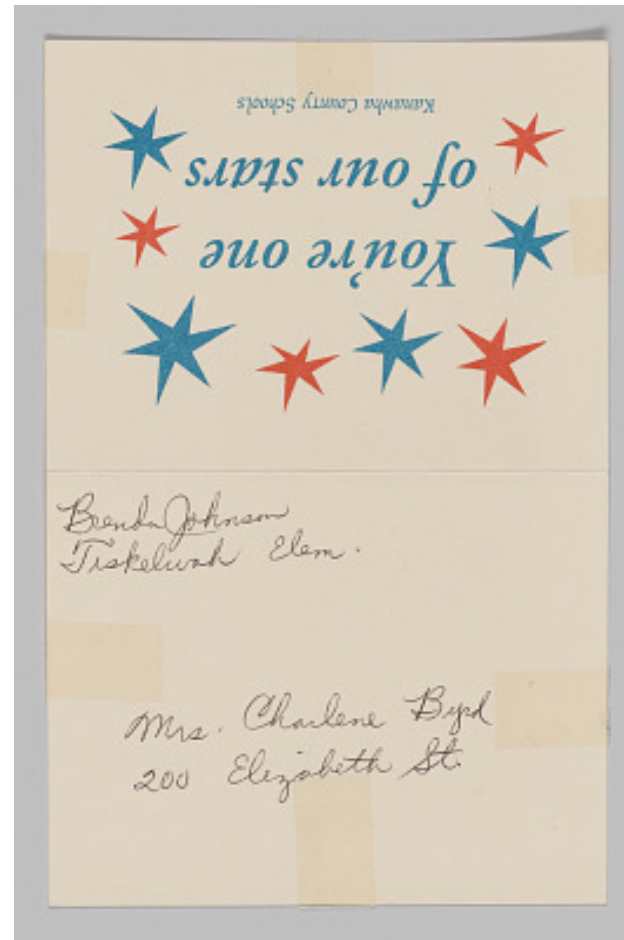 You're one
of our stars
Kanawha County Schools
Brenda Johnson
Tiskelwah Elem.
Mrs. Charlene Byrd
200 Elizabeth St.